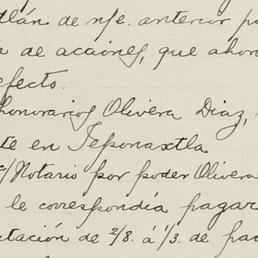 tlán de nfe. anterior po
a de acciones, que ahor
efecto.
honorarios Olivera Diaz,
te en Teponaxtla
c/ Notario por poder Olivera
le correspondía pagar
tación de 2/8. á 1/3. de pa